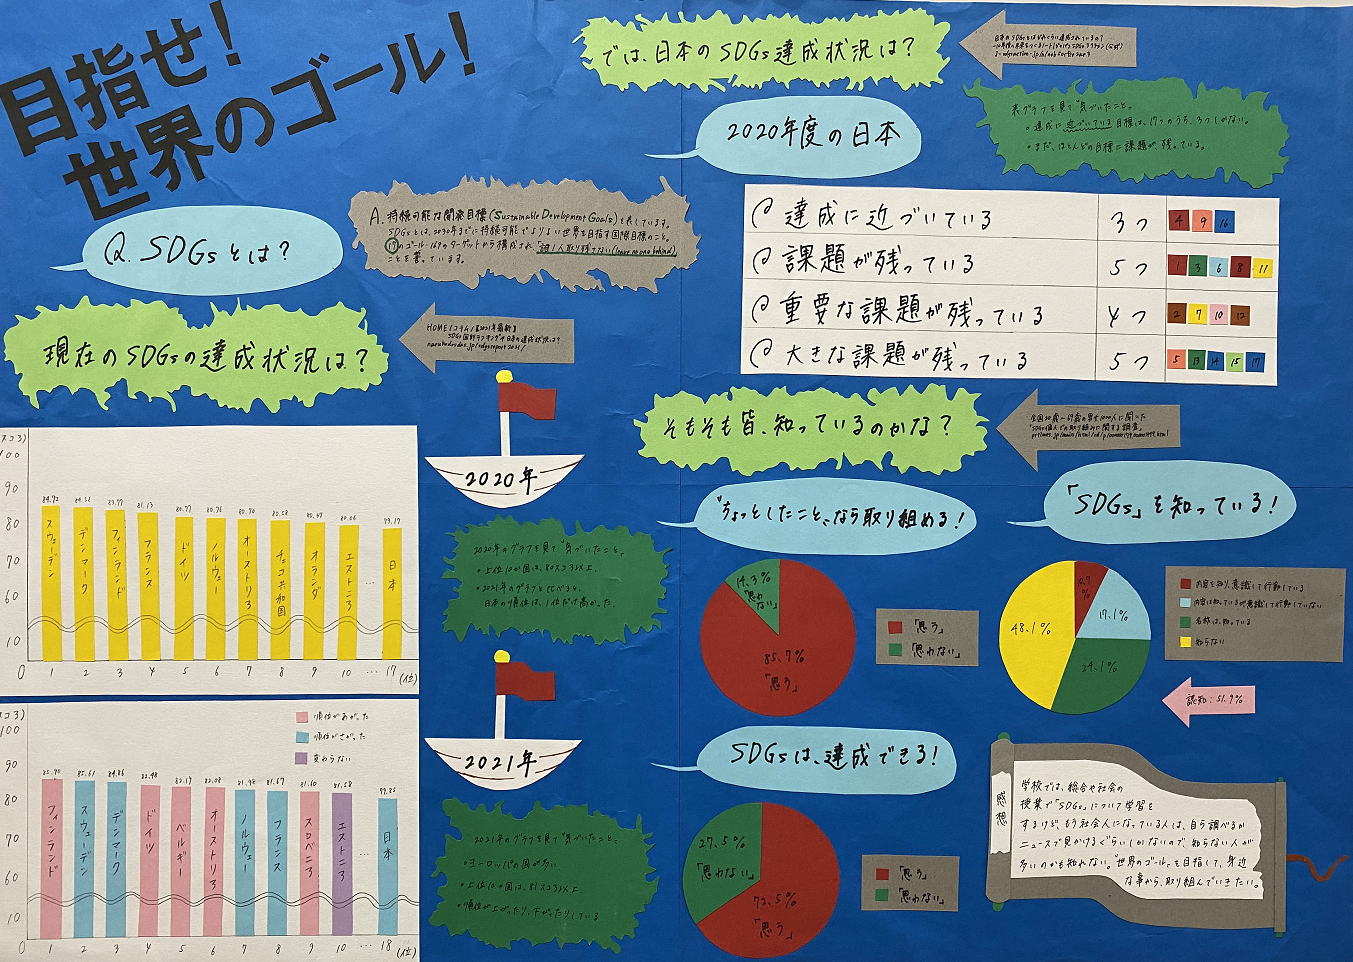 目指せ!
世界のゴール!
Q. SDGsとは?
A. 持続可能な開発目標(Sustainable Development Goals)を表しています。
SDGsとは、2030年までに持続可能でよりよい世界を目指す国際目標のこと。
17のゴール・169のターゲットから構成され、「誰1人取り残さない(leave no one behind)」
ことを誓っています。
現在のSDGsの達成状況は?
HOME/コラム/【2021年最新】
SDGs国別ランキング!日本の達成状況は?
(スコア)
100
90
80
70
60
10
0
84.72 84.56 83.77 81.13 80.77 80.76 80.70 80.58 80.37 80.06 79.17
スウェーデン
デンマーク
フィンランド
フランス
ドイツ
ノルウェー
オーストリア
チェコ共和国
オランダ
エストニア
…
日本
1 2 3 4 5 6 7 8 9 10 … 17 (位)
2020年
2020年のグラフを見て気づいたこと。
・上位10か国は、80スコア以上。
・2021年のグラフと比べると、
日本の順位は、1位だけ高かった。
(スコア)
100
90
80
70
60
10
0
順位があがった
順位がさがった
変わらない
85.90 85.61 84.86 82.48 82.19 82.08 81.98 81.67 81.60 81.58 79.85
フィンランド
スウェーデン
デンマーク
ドイツ
ベルギー
オーストリア
ノルウェー
フランス
スロベニア
エストニア
日本
1 2 3 4 5 6 7 8 9 10 … 18 (位)
2021年
2021年のグラフを見て気づいたこと。
・ヨーロッパの国が多い
・上位10か国は、81スコア以上
・順位が上がったり、下がったりしている
では、日本のSDGs達成状況は?
日本のSDGsはどれくらい達成されているの?
表グラフを見て気づいたこと。
・達成に近づいている目標は、17つのうち、3つしかない。
・まだ、ほとんどの目標に課題が残っている。
2020年度の日本
達成に近づいている 3つ 4 9 16
課題が残っている 5つ 1 3 6 8 11
重要な課題が残っている 4つ 2 7 10 12
大きな課題が残っている 5つ 5 13 14 15 17
そもそも皆、知っているのかな?
"ちょっとしたこと"なら取り組める!
14.3%
「思わない」
85.7%
「思う」
「思う」
「思わない」
「SDGs」を知っている!
48.1%
10.7%
17.1%
24.1%
内容を知り、意識して行動している
内容は知っているが意識して行動していない
名称は、知っている
知らない
認知:51.9%
SDGsは、達成できる!
27.5%
「思わない」
72.5%
「思う」
「思う」
「思わない」
感想
学校では、総合や社会の
授業で「SDGs」について学習を
するけど、もう社会人になっている人は、自ら調べるか
ニュースで見かけるぐらいしかないので、知らない人が
多いのかも知れない。"世界のゴール"を目指して、身近
な事から、取り組んでいきたい。